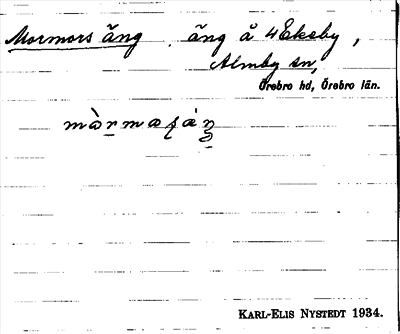 Mormors äng . äng å 4 Ekeby ,
Almby sn,
Örebro hd, Örebro län.
KARL-ELIS NYSTEDT 1934.